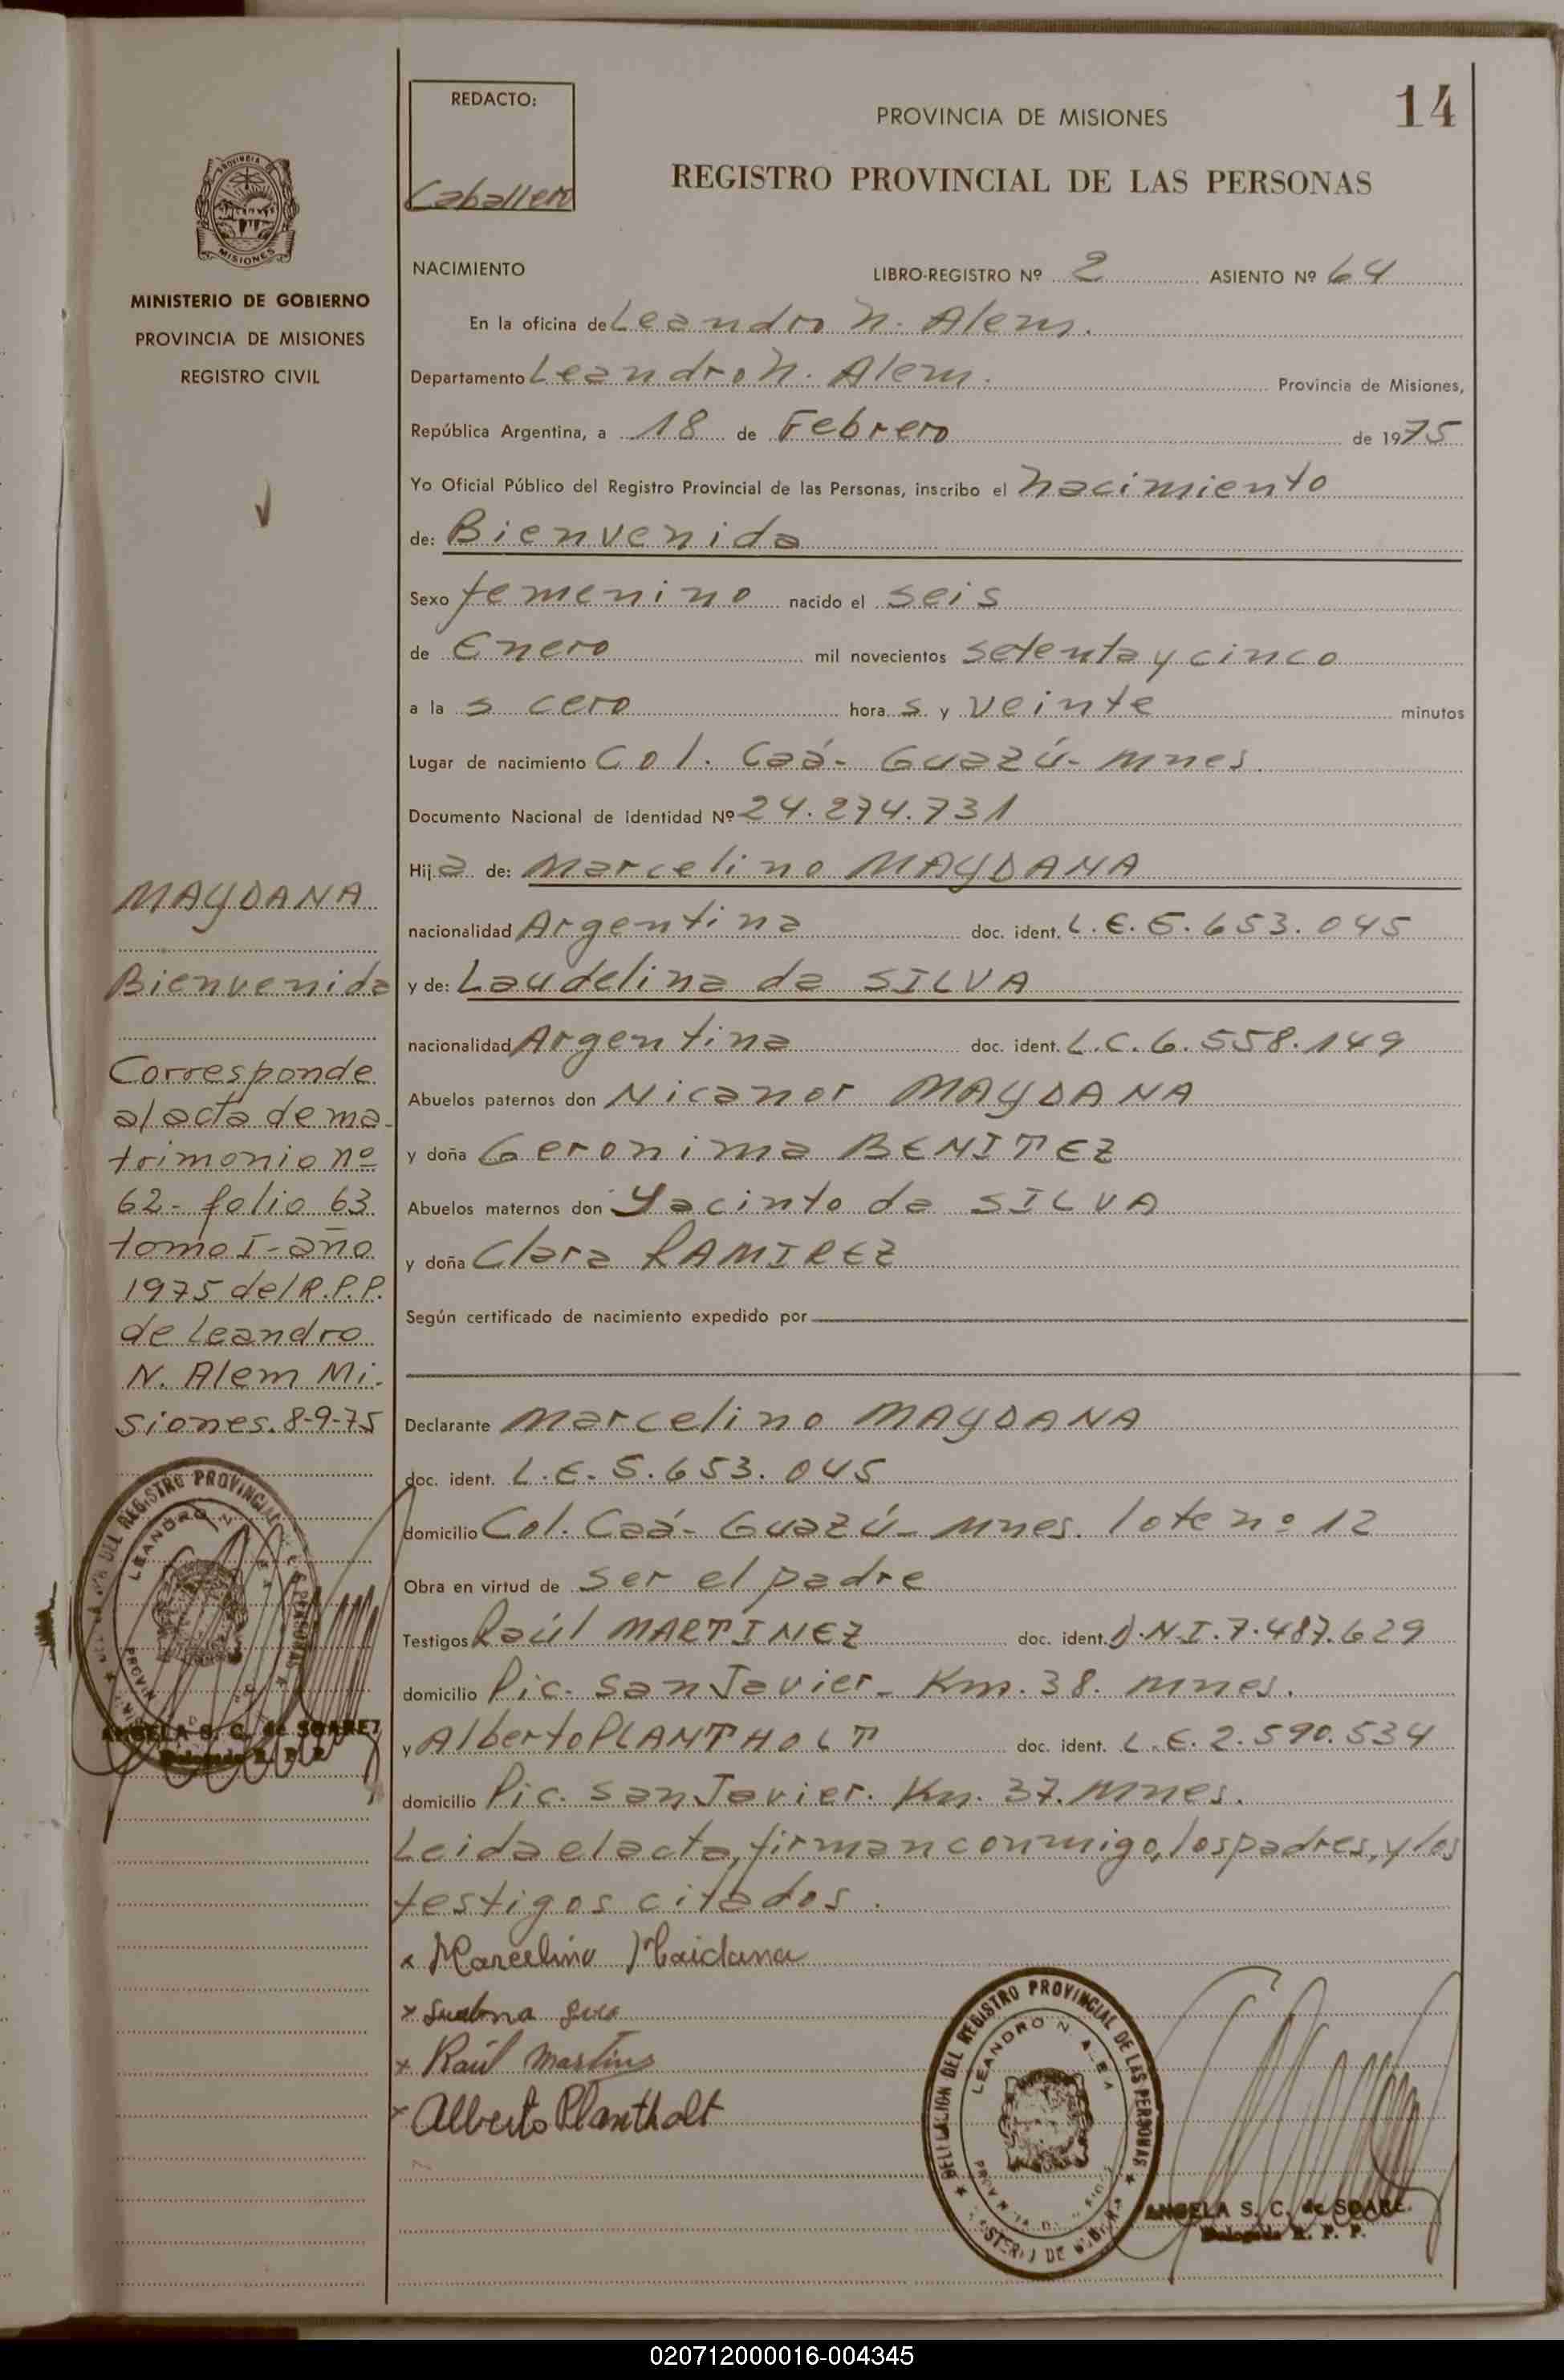 14
REDACTO:
Caballero
PROVINCIA DE MISIONES
REGISTRO PROVINCIAL DE LAS PERSONAS
MISIONES
MINISTERIO DE GOBIERNO
PROVINCIA DE MISIONES
REGISTRO CIVIL
NACIMIENTO LIBRO-REGISTRO Nº 2 ASIENTO Nº 64
En la oficina de Leandro N. Alem.
Departamento Leandro N. Alem. Provincia de Misiones,
República Argentina, a 18 de Febrero de 1975
Yo Oficial Público del Registro Provincial de las Personas, inscribo el nacimiento
de: Bienvenida
Sexo femenino nacido el seis
de Enero mil novecientos setenta y cinco
a la s cero hora s y veinte minutos
Lugar de nacimiento Col. Caá-Guazú-Mnes.
Documento Nacional de identidad Nº 24.274.731
Hija de: Marcelino MAYDANA
nacionalidad Argentina doc. ident. L.E. 5.653.045
y de: Laudelina da SILVA
nacionalidad Argentina doc. ident. L.C. 6.558.149
Abuelos paternos don Nicanor MAYDANA
y doña Geronima BENITEZ
Abuelos maternos don Yacinto da SILVA
y doña Clara RAMIREZ
Según certificado de nacimiento expedido por
Declarante Marcelino MAYDANA
doc. ident. L.E. 5.653.045
domicilio Col. Caá-Guazú-Mnes. lote nº 12
Obra en virtud de ser el padre
Testigos Raúl MARTÍNEZ doc. ident. D.N.I. 7.487.629
domicilio Pic. San Javier- Km. 38. Mnes.
y Alberto PLANTHOLT doc. ident. L.E. 2.590.534
domicilio Pic. San Javier. Km. 37. Mnes.
Leida el acta, firman conmigo, los padres, y los
testigos citados.
x Marcelino Maidana
x
x Raúl Martins
x Alberto Plantholt
MAYDANA
Bienvenida
Corresponde
al acta de ma-
trimonio nº
62- folio 63
tomo I-año
1975 del R.P.P.
de Leandro
N. Alem Mi-
siones. 8-9-75
DEL REGISTRO PROVINCIAL
LEANDRO N.
ANGELA S. C. de SOAREZ
Delegada R. P. P.
DELEGACION DEL REGISTRO PROVINCIAL DE LAS PERSONAS
LEANDRO N. ALEM
ANGELA S. C. de SOARE
Delegada R. P. P.
020712000016-004345